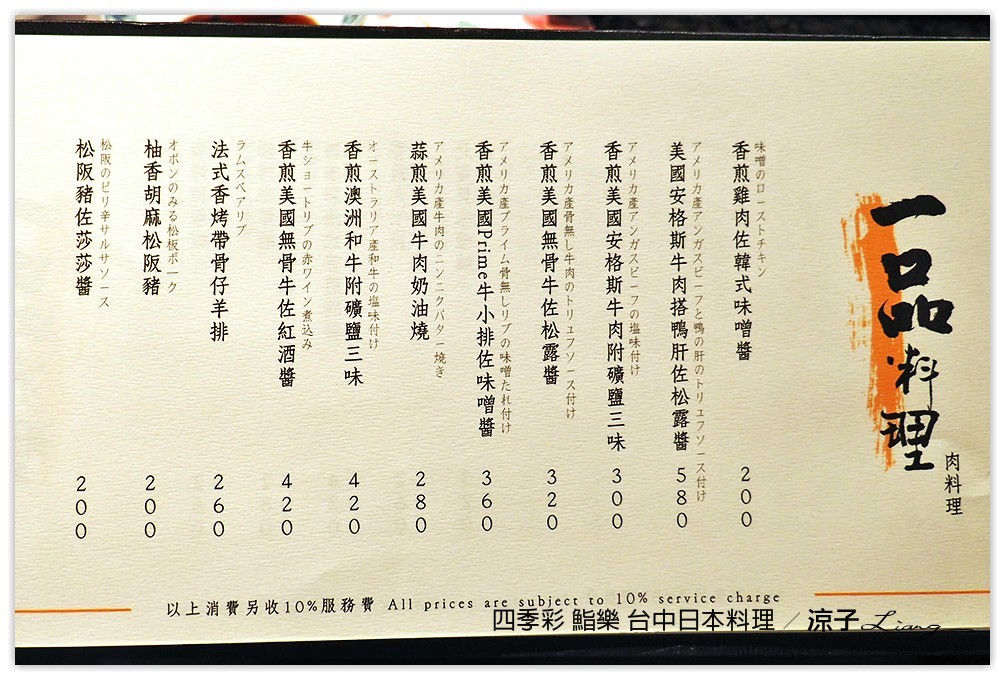 一品料理
肉料理
味噌のローストチキン
香煎雞肉佐韓式味噌醬
200
アメリカ產アンガスビーフと鴨の肝のトリュフソース付け
美國安格斯牛肉搭鴨肝佐松露醬
580
アメリカ產アンガスビーフの塩味付け
香煎美國安格斯牛肉附礦鹽三味
300
アメリカ產骨無し牛肉のトリュフソース付け
香煎美國無骨牛佐松露醬
320
アメリカ產プライム骨無しリブの味噌たれ付け
香煎美國Prime牛小排佐味噌醬
360
アメリカ產牛肉のニンニクバター焼き
蒜煎美國牛肉奶油燒
280
オーストラリア產和牛の塩味付け
香煎澳洲和牛附礦鹽三味
420
牛ショートリブの赤ワイン煮込み
香煎美國無骨牛佐紅酒醬
420
ラムスペアリブ
法式香烤帶骨仔羊排
260
オボンのみる松板ポーク
柚香胡麻松阪豬
200
松阪のピリ辛サルサソース
松阪豬佐莎莎醬
200
以上消費另收10%服務費 All prices are subject to 10% service charge
四季彩 鮨樂 台中日本料理 / 涼子 Liang